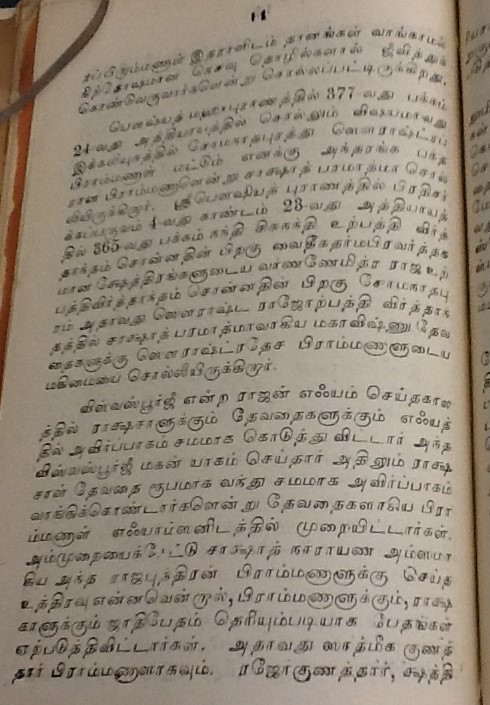 11
ரப்பிரும்மணாள் இதராளிடம் தானங்கள் வாங்காமல்
நிற்தோஷமான நெசவு தொழில்களால் ஜீவித்துக்
கொண்டுவருவார்களென்று சொல்லப்பட்டிருக்கிறது.
பௌஷ்யத் மஹாபுராணத்தில் 377-வது பக்கம்
24-வது அத்தியாயத்தில் சொல்லும் விஷயமாவது
இக்கலியுகத்தில் சோமநாதபுரத்து ஸௌராஷ்ட்ரப்
பிராம்மணாள் மட்டும் எனக்கு அந்தரங்க பக்த
ரான பிராம்மணாளென்று சாக்ஷாத் பரமாத்மா சொல்
லியிருக்கிறார். ஸ்ரீபௌஷியத் புராணத்தில் பிரதிசர்
க்கப்பருவம் 4-வது காண்டம் 23-வது அத்தியாயத்
தில் 365-வது பக்கம் நந்தி சிசுநந்தி உற்பத்தி விர்த்
தாந்தம் சொன்னதின் பிறகு வைதீகதர்மபிரவர்த்தக
மான க்ஷேத்திரங்களுடைய வர்ணனேமித்ர ராஜ உற்
பத்திவிர்த்தாந்தம் சொன்னதின் பிறகு சோமநாதபு
ரம் அதாவது ஸௌராஷ்ட ராஜோற்பத்தி விர்த்தாந்
தத்தில் சாக்ஷாத் பரமாத்மாவாகிய மகாவிஷ்ணு தேவ
தைகளுக்கு ஸௌராஷ்ட்ரதேச பிராம்மணாளுடைய
மகிமையை சொல்லியிருக்கிறார்.
விஸ்வஸ்பூர்ஜீ என்ற ராஜன் எஃயம் செய்தகால
த்தில் ராக்ஷசாளுக்கும் தேவதைகளுக்கும் எஃயத்
தில் அவிர்ப்பாகம் சமமாக கொடுத்து விட்டார் அந்த
விஸ்வஸ்பூர்ஜீ மகன் யாகம் செய்தார் அதிலும் ராக்ஷ
சாள் தேவதை ரூபமாக வந்து சமமாக அவிர்ப்பாகம்
வாங்கிக்கொண்டார்களென்று தேவதைகளாகிய பிரா
ம்மணாள் எஃயாம்ஸனிடத்தில் முறையிட்டார்கள்.
அம்முறையைக்கேட்டு சாக்ஷாத் நாராயண அம்ஸமா
கிய அந்த ராஜபுத்திரன் பிராம்மணாளுக்கு செய்த
உத்திரவு என்னவென்றால், பிராம்மணாளுக்கும், ராக்ஷ
காளுக்கும் ஜாதிபேதம் தெரியும்படியாக பேதங்கள்
ஏற்படுத்திவிட்டார்கள். அதாவது ஸாத்மீக குணத்
தார் பிராம்மணாளாகவும். ரஜோர்குணத்தார், க்ஷத்தி